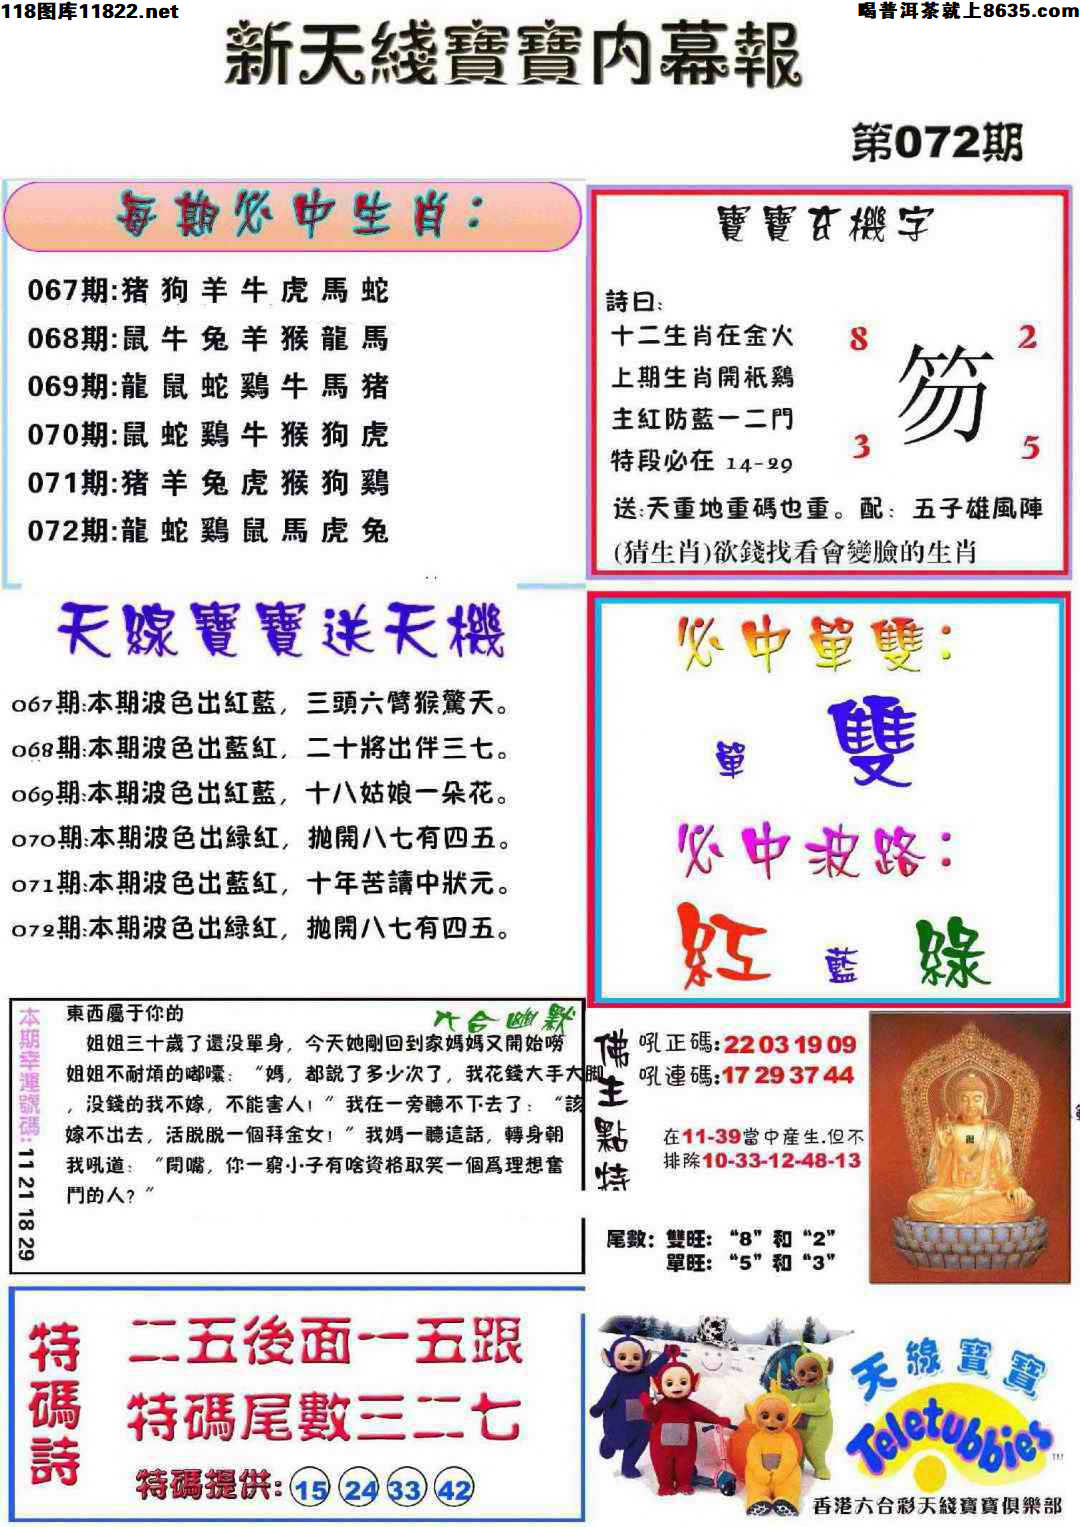 118图库11822.net
喝普洱茶就上8635.com
新天綫寶寶内幕報
第072期
每期必中生肖：
067期:猪狗羊牛虎馬蛇
068期:鼠牛兔羊猴龍馬
069期:龍鼠蛇鷄牛馬猪
070期:鼠蛇鷄牛猴狗虎
071期:猪羊兔虎猴狗鷄
072期:龍蛇鷄鼠馬虎兔
寶寶玄機字
詩曰:
十二生肖在金火
上期生肖開祇鷄
主紅防藍一二門
特段必在 14-29
8 2
笏
3 5
送:天重地重碼也重。配：五子雄風陣
(猜生肖)欲錢找看會變臉的生肖
天線寶寶送天機
067期:本期波色出紅藍，三頭六臂猴驚天。
068期:本期波色出藍紅，二十將出伴三七。
069期:本期波色出紅藍，十八姑娘一朵花。
070期:本期波色出緑紅，抛開八七有四五。
071期:本期波色出藍紅，十年苦讀中狀元。
072期:本期波色出緑紅，抛開八七有四五。
必中單雙：
單 雙
必中波路：
紅 藍 綠
本期幸運號碼: 11 21 18 29
六合幽默
東西屬于你的
姐姐三十歲了還没單身，今天她剛回到家媽媽又開始嘮
姐姐不耐煩的嘟囔：“媽，都説了多少次了，我花錢大手大脚
，没錢的我不嫁，不能害人！”我在一旁聽不下去了：“該
嫁不出去，活脱脱一個拜金女！”我媽一聽這話，轉身朝
我吼道：“閉嘴，你一窮小子有啥資格取笑一個爲理想奮
鬥的人？”
佛主點特
吼正碼:22 03 19 09
吼連碼:17 29 37 44
在11-39當中産生.但不
排除10-33-12-48-13
尾數：雙旺：“8”和“2”
單旺：“5”和“3”
特碼詩
二五後面一五跟
特碼尾數三二七
特碼提供: 15 24 33 42
天線寶寶
Teletubbies
TM
香港六合彩天綫寶寶俱樂部